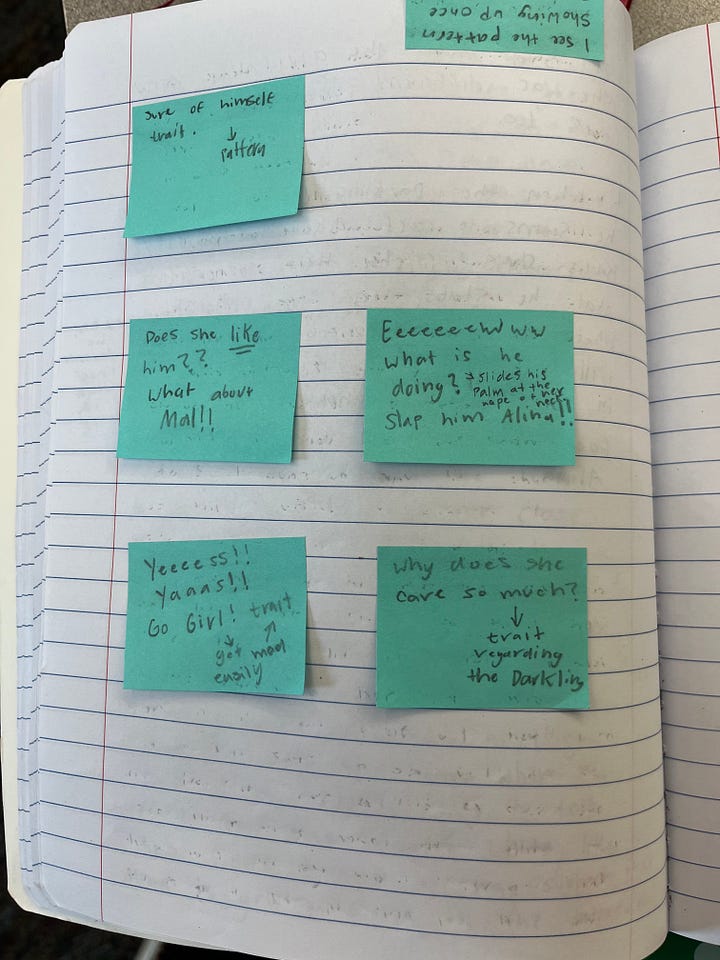 I see the pattern
Showing up once
sure of himself
trait.
↓
pattern
Does she like
him??
What about
Mal!!
Eeeeeeewwww
what is he
doing? → slides his
palm at the
nape of her
neck
Slap him Alina!!
Yeeeess!!
Yaaas!!
Go Girl! trait
↓ ↑
get mad
easily
Why does she
care so much?
↓
trait
regarding
the Darkling